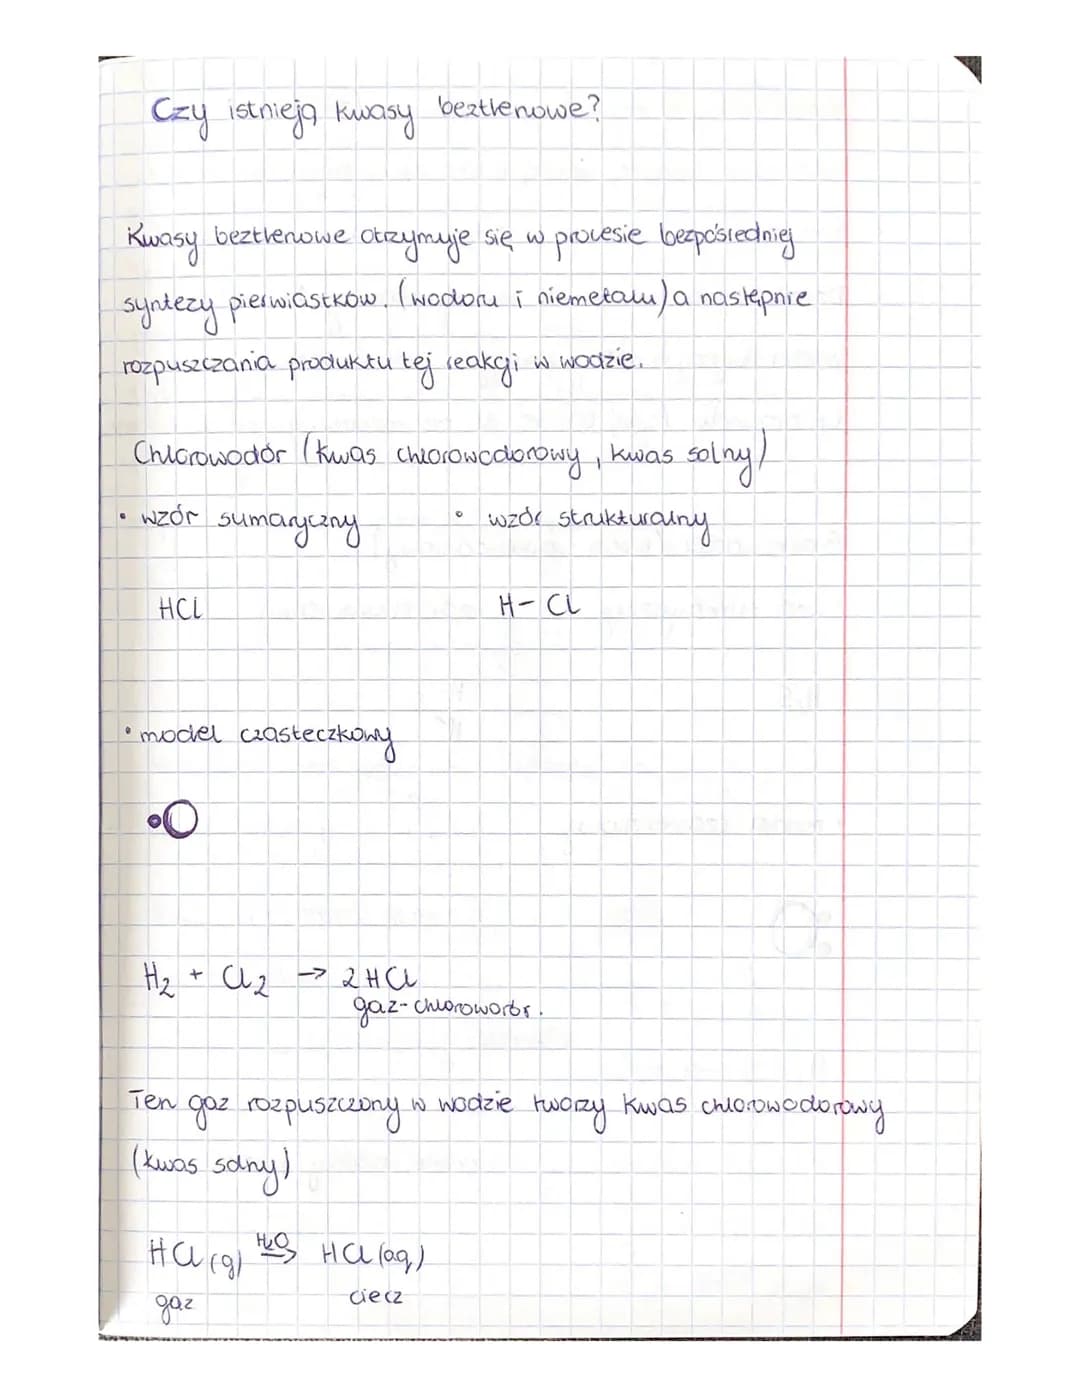 Czy istnieją kwasy beztlenowe?
Kwasy beztlenowe otrzymuje się w procesie bezpośredniej
syntezy pierwiastków. (wodoru i niemetalu) a następnie
rozpuszczania produktu tej reakcji w wodzie.
Chlorowodór (kwas chlorowodorowy, kwas solny)
• wzór sumaryczny • wzór strukturalny
HCl H-Cl
• model cząsteczkowy
H₂ + Cl₂ → 2HCl
gaz-chlorowodór.
Ten gaz rozpuszczony w wodzie tworzy kwas chlorowodorowy
(kwas solny)
HCl (g) H₂O→ HCl (aq)
gaz ciecz